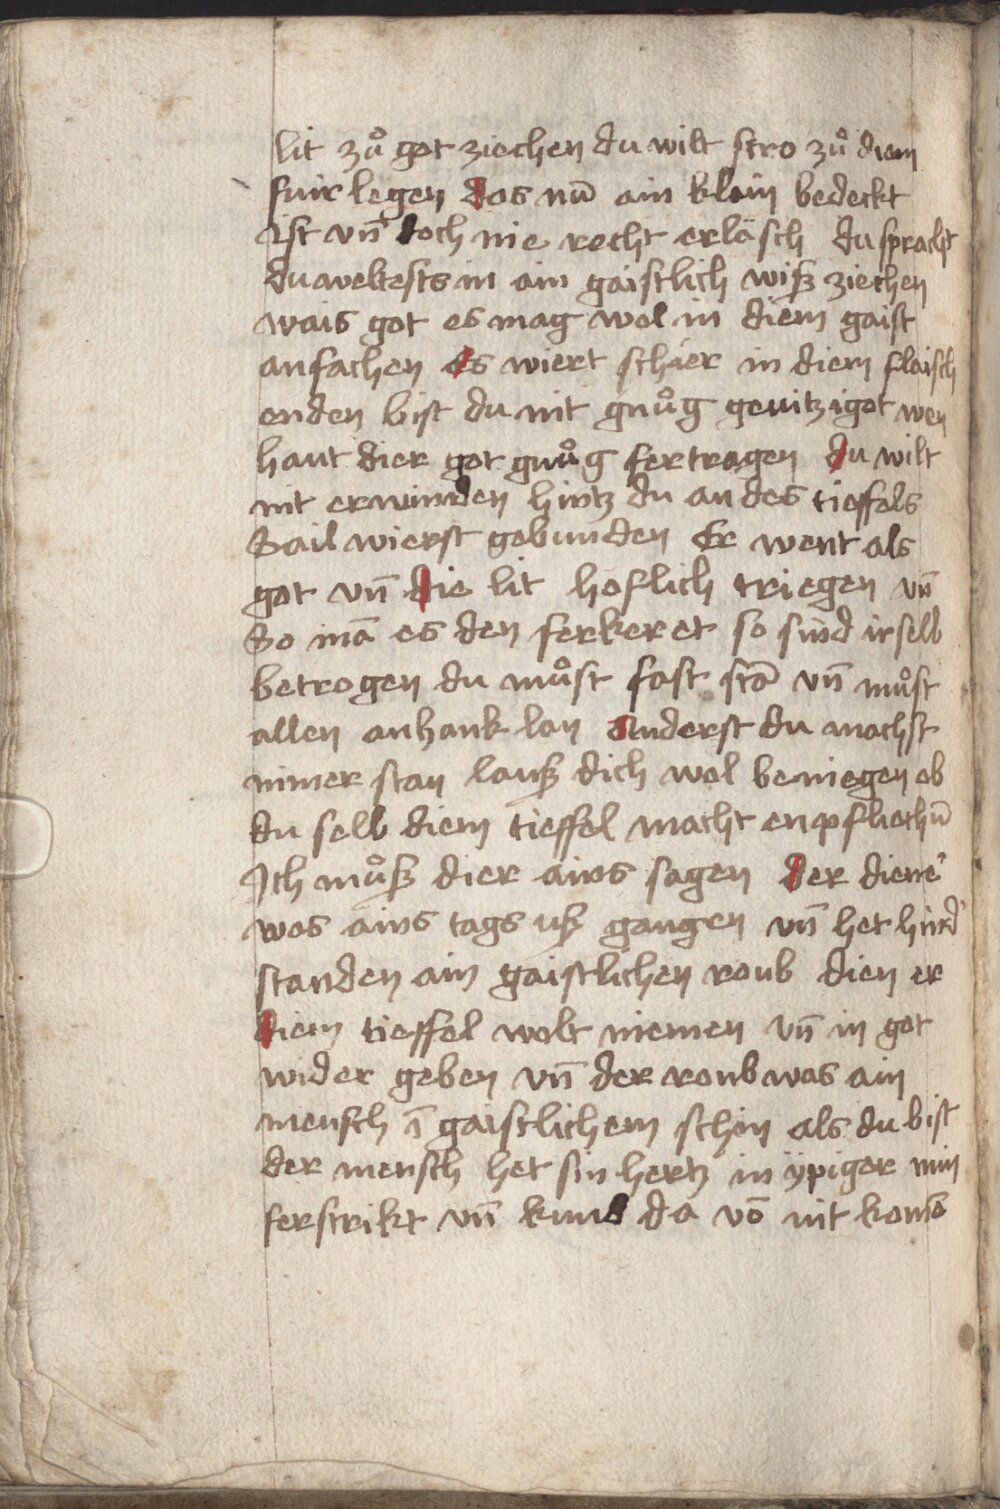 lit zuͦ got ziechen du wilt stro zuͦ diem
fuir legen das nū ain klain bedeckt
ist vn̄ doch nie recht erläsch du spracht
du weltests in ain gaistlich wiß ziechen
wais got es mag wol in diem gaist
anfachen es wiert schier in diem flaisch
enden bist du nit gnuͦg gewitzigot wen
haut dier got gnuͦg fertragen du wilt
nit erwinden hintz du an des tieffels
Sail wierst gebunden Er went als
got vn̄ die lit hoflich triegen vn̄
So mā es den ferkeret so sind ir selb
betrogen du muͦst fast stā vn̄ muͦst
allen anhank lan anderst du machst
nimer stan lauß dich wol beniegen ob
du selb diem tieffel macht enpfliechn̄
Ich muͦß dier ains sagen der diene᾽
was ains tags uß gangen vn̄ het hind᾽
standen ain gaistlichen roub dien er
diem tieffel wolt niemen vn̄ in got
wider geben vn̄ der roub was ain
mensch ī gaistlichem schin als du bist
der mensch het sin hertz in ÿpiger min
ferstrikt vn̄ kund da vō nit komē